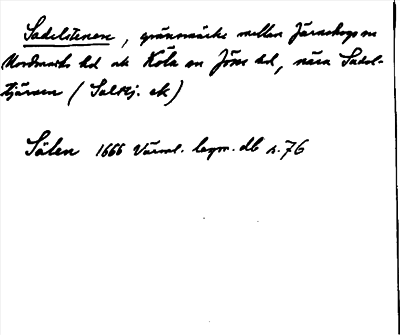 Sadelstenen, gränsmärke mellan Järnskogs sn
Nordmarks hd ok Köla sn Jösse hd, nära Sadel-
tjärnen (Saltj. ek)
Sålen 1666 Värml. legm. db s. 76